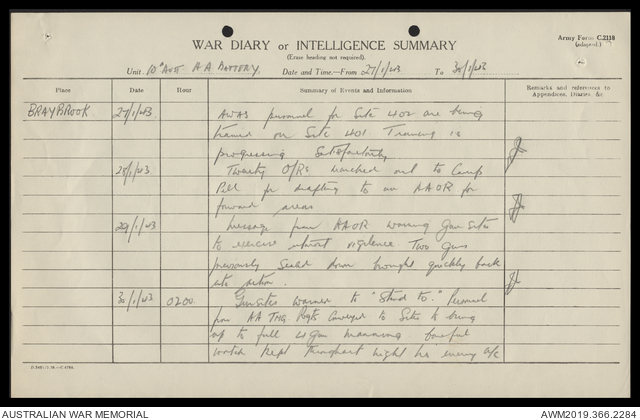 Army Form C.2118
(adapted.)
WAR DIARY or INTELLIGENCE SUMMARY
(Erase heading not required).
Unit 10th Aust A A Battery. Date and Time—From 27/1/43 To 30/1/43
Place Date Hour Summary of Events and Information Remarks and references to Appendices, Diaries, &c
BRAYBROOK 27/1/43. AWAS personnel for Site 402 are being
trained on Site 401 Training is
progressing satisfactorily
28/1/43 Twenty O/Rs marched out to Camp
Pell for drafting to an AAOR for
forward areas
29/1/43 Message from AAOR warning Gun Sites
to exercise utmost vigilance Two Guns
previously sealed down brought quickly back
into action.
30/1/43 0200 Gunsites warned to "Stand to." Personnel
from AA TNG. Regts conveyed to Sites to bring
up to full 4 gun manning Careful
watch kept throughout night no enemy a/c
AUSTRALIAN WAR MEMORIAL AWM2019.366.2284